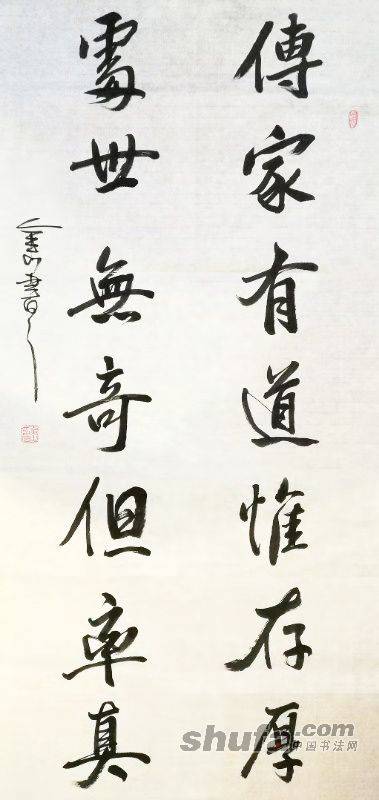 傳家有道惟存厚
處世無奇但率真
shufa.com
中国书法网